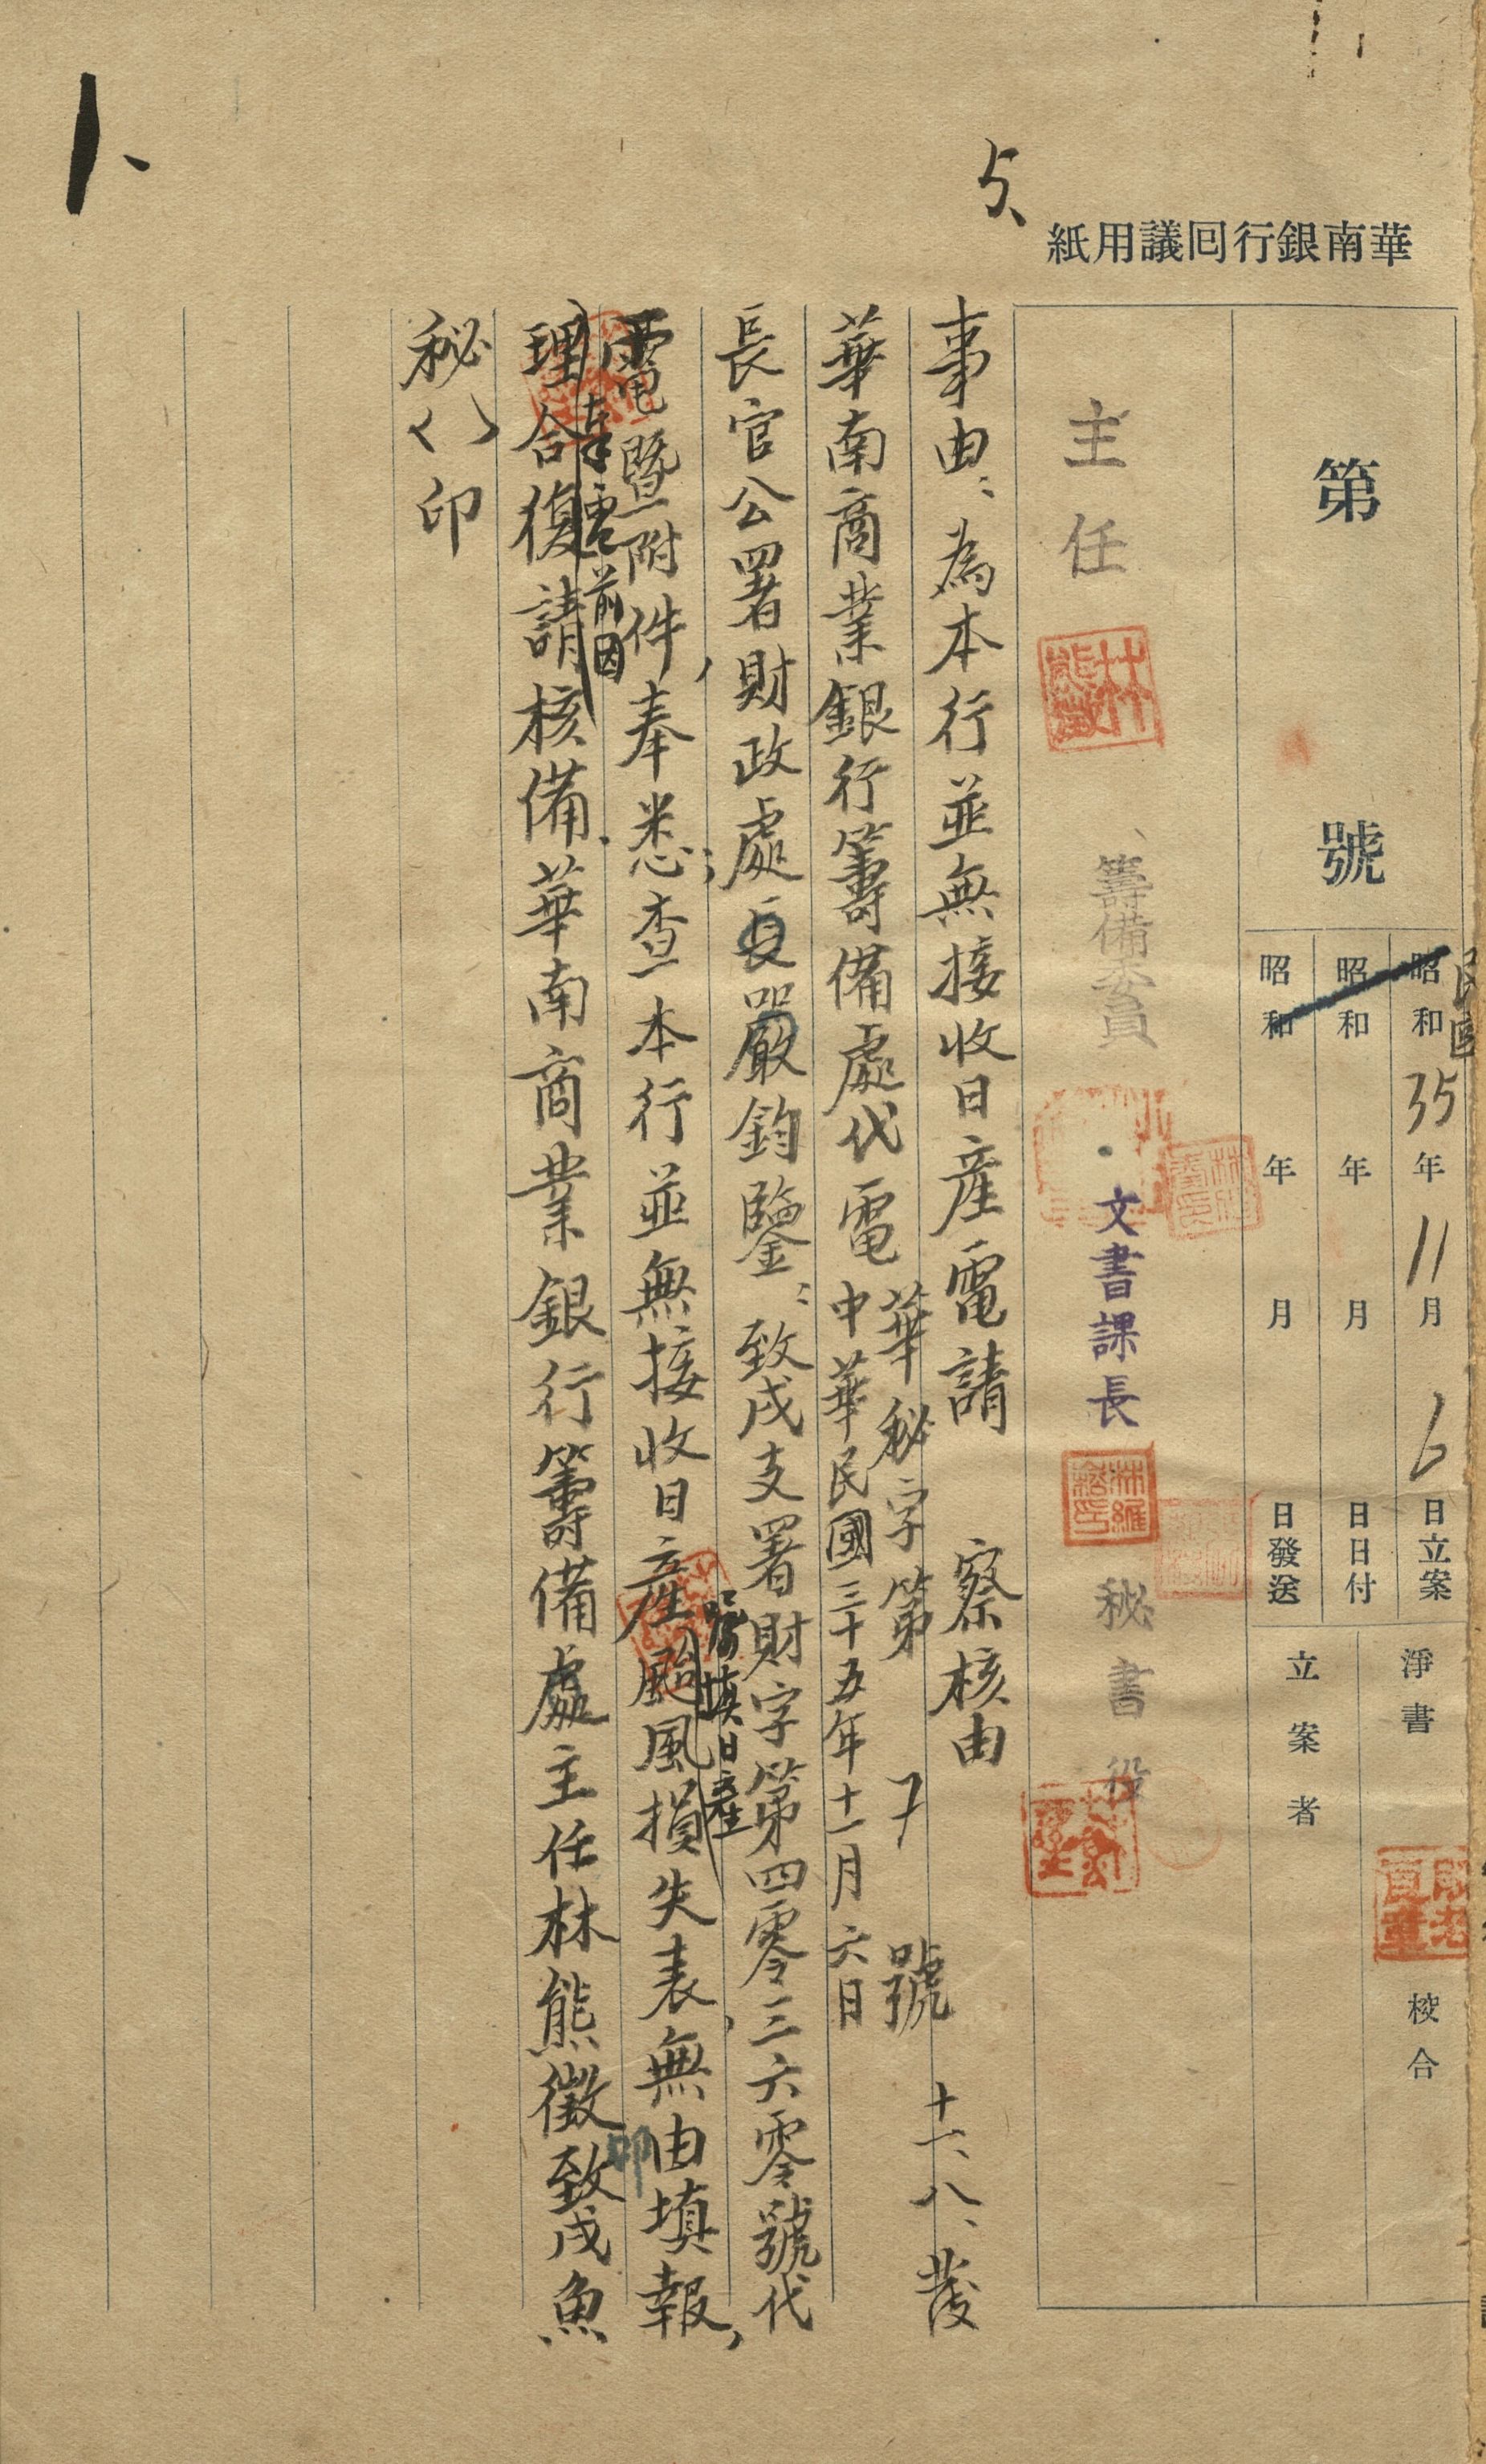 華南銀行囘議用紙
5、
第 號
民國
昭和35年11月6日立案
昭和 年 月 日日付
昭和 年 月 日發送
淨書 校合
立案者
主任 籌備委員 文書課長 秘書役
事由：為本行並無接收日產電請 察核由 十一、八、發
華秘字第 7 號
華南商業銀行籌備處代電 中華民國三十五年十一月六日
長官公署財政處處長嚴鈞鑒：致戌支署財字第四零三六零號代
電暨附件，奉悉；查本行並無接收日產颱風損失表，無由填報，
囑填日產
奉電前因
理合復請核備．華南商業銀行籌備處主任林熊徵致戌魚
印
秘（ ）印
1、